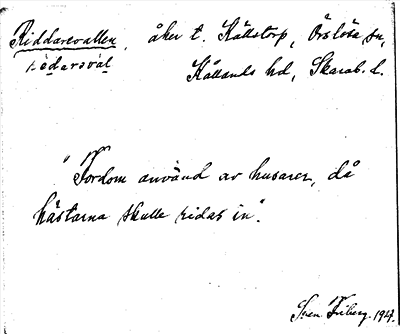 Riddarevallen, åker t. Källstorp, Örslösa sn,
Kållands hd, Skarab. l.
"Fordom använd av husarer, då
hästarna skulle ridas in".
Sven Friberg. 1927.